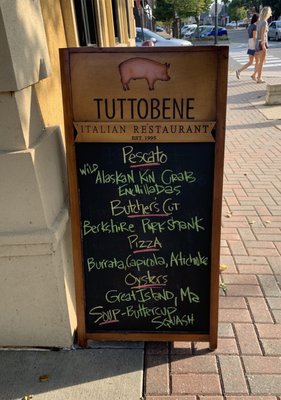 TUTTOBENE
ITALIAN RESTAURANT
EST. 1995
Pescato
Wild
Alaskan Kin Crab
Enchilladas
Butchers Cut
Berkshire Pork Shank
Pizza
Burrata, Capicola, Artichoke
Oysters
Great Island, Ma
Soup - Buttercup
Squash